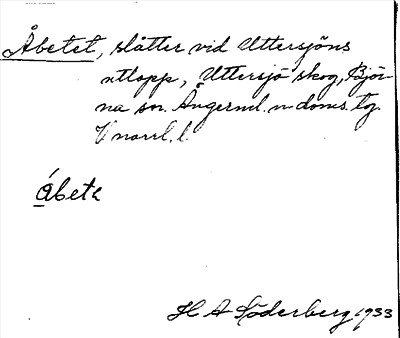 Åbetet, slåtter vid Uttersjöns
utlopp, Uttersjö skog, Björ-
na sn. Ångerml. n doms. tg.
V norrl. l.
åbete
H A Söderberg 1933